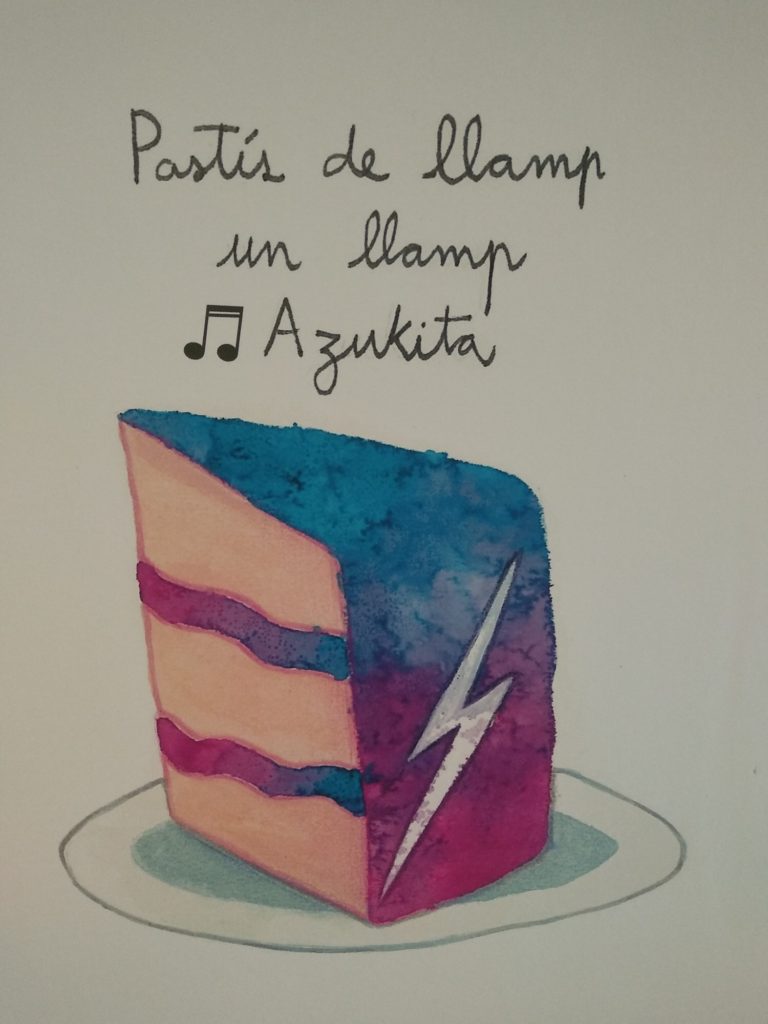 Pastís de llamp
un llamp
♫ Azukita